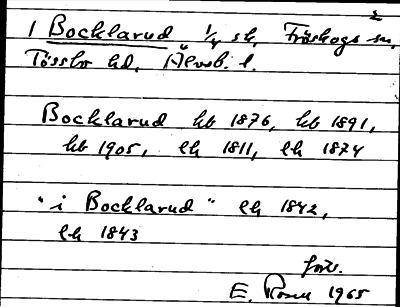 2
1 Bocklarud 1/4 sk. Fröskogs sn.
Tössbo hd. Älvsb. l.
Bocklarud hb 1876, hb 1891,
hb 1905, lh 1811, lh 1874
"i Bocklarud" lh 1842,
lh 1843
E. Rosen 1965